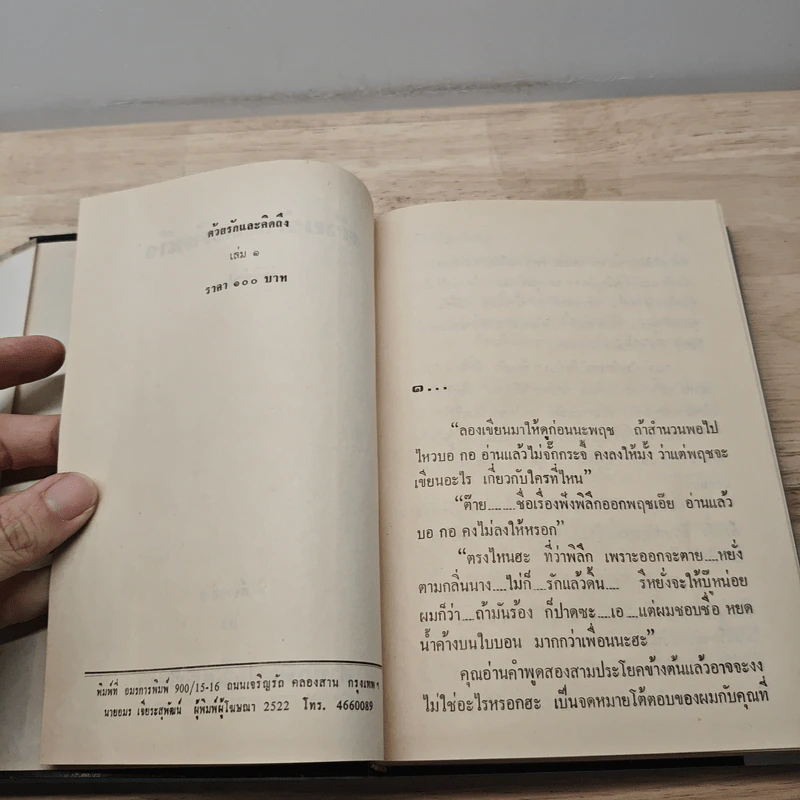 ด้วยรักและคิดถึง
เล่ม ๑
ราคา ๑๐๐ บาท
พิมพ์ที่ อมรการพิมพ์ 900/15-16 ถนนเจริญรัถ คลองสาน กรุงเทพ ฯ
นายอมร เจียระสุพัฒน์ ผู้พิมพ์ผู้โฆษณา 2522 โทร. 4660089
๑...
“ลองเขียนมาให้ดูก่อนนะพฤช ถ้าสำนวนพอไป
ไหวบอ กอ อ่านแล้วไม่จั๊กกระจี้ คงลงให้มั้ง ว่าแต่พฤชจะ
เขียนอะไร เกี่ยวกับใครที่ไหน”
“ต๊าย.........ชื่อเรื่องฟังพิลึกออกพฤชเอ๊ย อ่านแล้ว
บอ กอ คงไม่ลงให้หรอก”
“ตรงไหนฮะ ที่ว่าพิลึก เพราะออกจะตาย....หยั่ง
ตามกลิ่นนาง.....ไม่ก็....รักแล้วดิ้น.... รึหยั่งจะให้บู๊หน่อย
ผมก็ว่า....ถ้ามันร้อง ก็ปาดซะ....เอ....แต่ผมชอบชื่อ หยด
น้ำค้างบนใบบอน มากกว่าเพื่อนนะฮะ”
คุณอ่านคำพูดสองสามประโยคข้างต้นแล้วอาจจะงง
ไม่ใช่อะไรหรอกฮะ เป็นจดหมายโต้ตอบของผมกับคุณที่